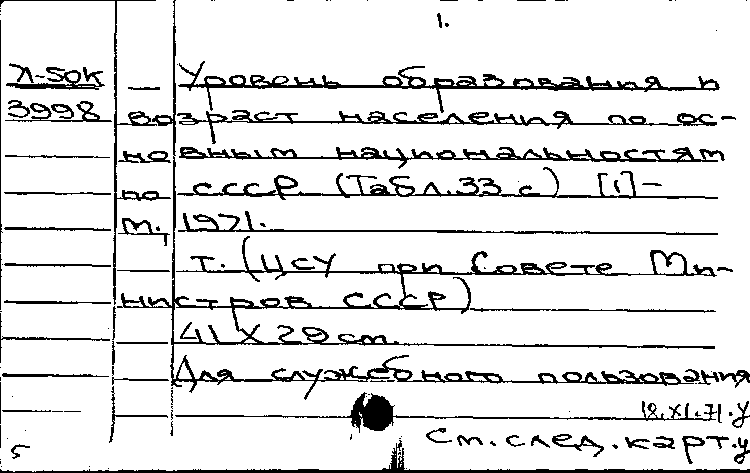 1.
Л-50К
3998
— Уровень образования и
возраст населения по ос-
новным национальностям
по СССР. (Табл. 33 с) [1] -
М., 1971.
т. (ЦСУ при Совете Ми-
нистров СССР)
41 X 29 см.
Для служебного пользования
18.XI.71.у
См. след. карт. у
5